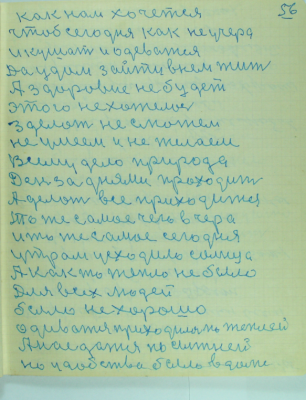 56
как нам хочется
чтоб сегодня как не вчера
и кушат и одеватся
Да
А здоровие не будет
этого не хотелос
зделат не сможем
не умеем и не желаем
Всему дело природа
Ден за днями проходит
А делат все приходится
То же самое че вчера
и то же самое сегодня
утрам усходило солнца
А как то тепло не было
Для всех людей
было не хорошо
одиватся приходилось теплей
А наедатся по ситней
но удобства было в доме